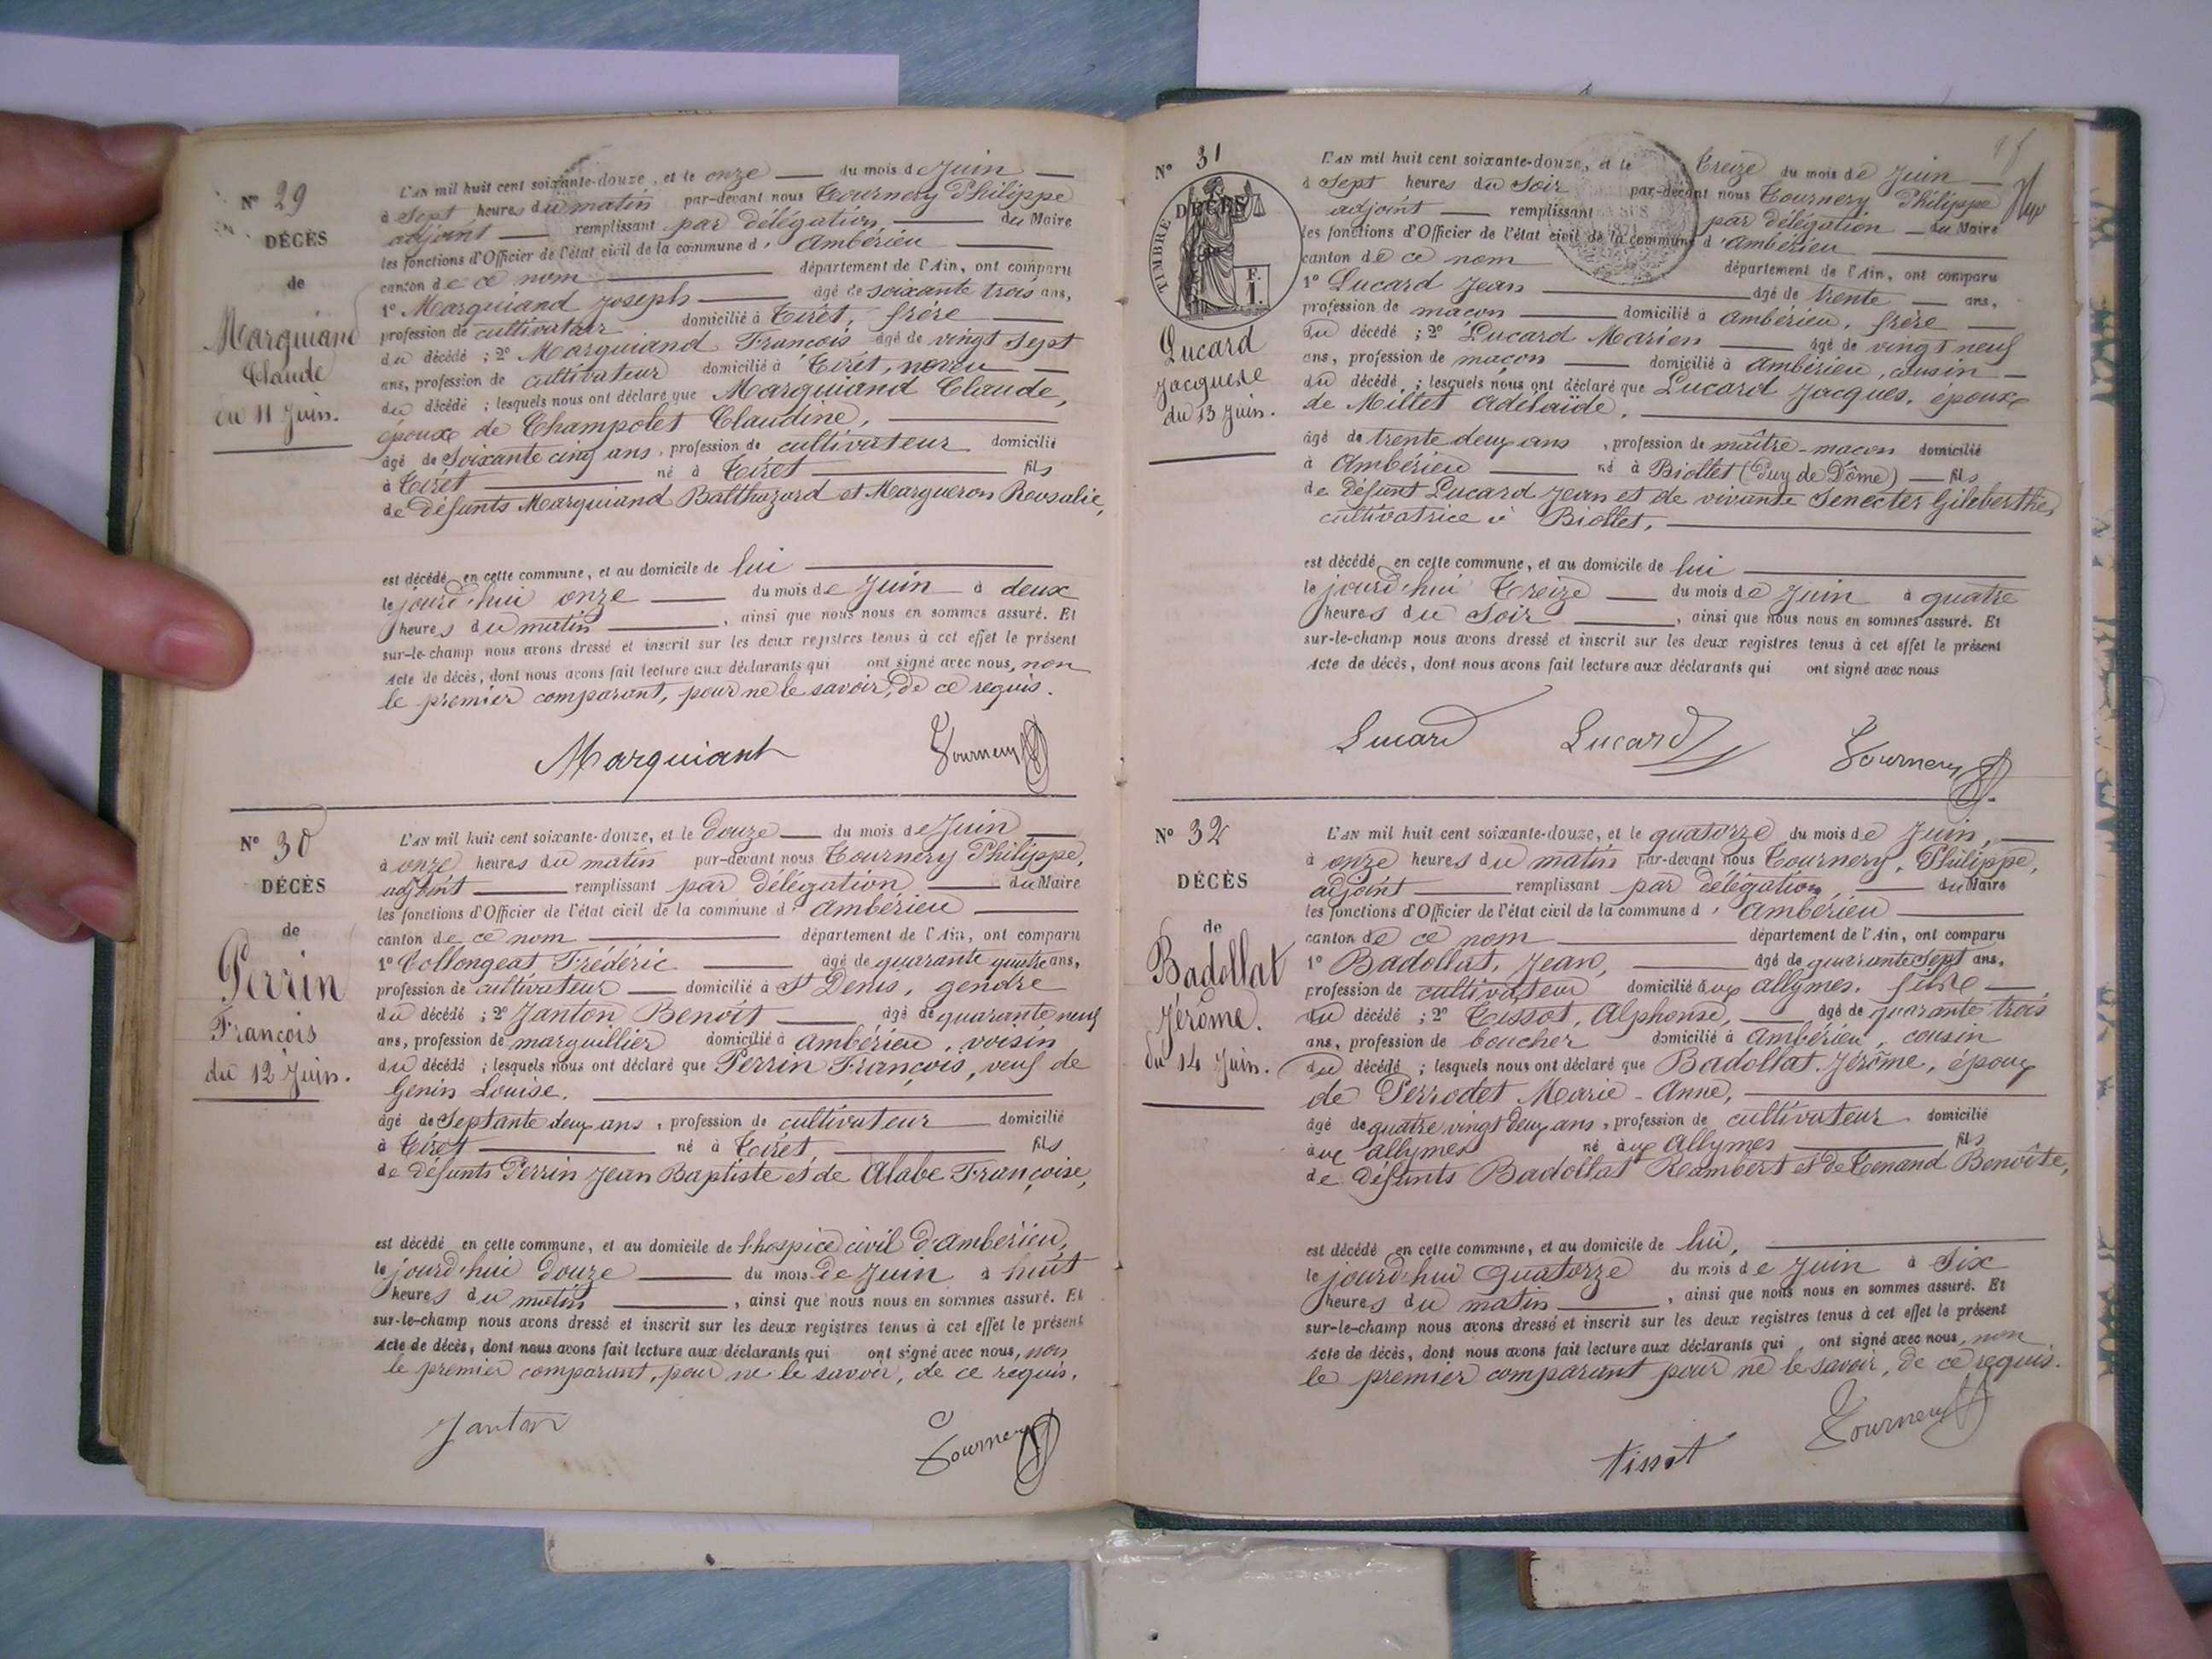 N° 29
DÉCÈS
de
Marquiand
Claude
du 11 Juin.
L'AN mil huit cent soixante-douze, et le onze du mois de Juin
à Sept heures du matin par-devant nous Tournery Philippe
adjoint remplissant par délégation du Maire
les fonctions d'Officier de l'état civil de la commune d'Ambérieu
canton de ce nom département de l'Ain, ont comparu
1° Marquiand Joseph âgé de soixante trois ans,
profession de cultivateur domicilié à Tirét, frère
du décédé ; 2° Marquiand François âgé de vingt sept
ans, profession de cultivateur domicilié à Tirét, neveu
du décédé ; lesquels nous ont déclaré que Marquiand Claude,
époux de Champolet Claudine,
âgé de Soixante cinq ans, profession de cultivateur domicilié
à Tirét né à Tirét fils
de défunts Marquiand Balthazard et Margueron Rosalie,
est décédé en cette commune, et au domicile de lui
le jourd'hui onze du mois de Juin à deux
heures du matin, ainsi que nous nous en sommes assuré. Et
sur-le-champ nous avons dressé et inscrit sur les deux registres tenus à cet effet le présent
Acte de décès, dont nous avons fait lecture aux déclarants qui ont signé avec nous, non
le premier comparant, pour ne le savoir, de ce requis.
Marquiant Tournery
N° 30
DÉCÈS
de
Perrin
François
du 12 Juin.
L'AN mil huit cent soixante-douze, et le douze du mois de Juin
à onze heures du matin par-devant nous Tournery Philippe,
adjoint remplissant par délégation du Maire
les fonctions d'Officier de l'état civil de la commune d'Ambérieu
canton de ce nom département de l'Ain, ont comparu
1° Collongeat Frédéric âgé de quarante quatre ans,
profession de cultivateur domicilié à St Denis, gendre
du décédé ; 2° Janton Benoît âgé de quarante neuf
ans, profession de marguillier domicilié à Ambérieu, voisin
du décédé ; lesquels nous ont déclaré que Perrin François, veuf de
Genin Louise.
âgé de Septante deux ans, profession de cultivateur domicilié
à Tirét né à Tirét, fils
de défunts Perrin Jean Baptiste et de Alabe Françoise,
est décédé en cette commune, et au domicile de l'hospice civil d'Ambérieu,
le jourd'hui douze du mois de Juin à huit
heures du matin, ainsi que nous nous en sommes assuré. Et
sur-le-champ nous avons dressé et inscrit sur les deux registres tenus à cet effet le présent
Acte de décès, dont nous avons fait lecture aux déclarants qui ont signé avec nous, non
le premier comparant, pour ne le savoir, de ce requis.
Janton Tournery
N° 31
TIMBRE
DÉCÈS
Lucard
Jacques
du 13 Juin.
L'AN mil huit cent soixante-douze, et le Treize du mois de Juin
à Sept heures du Soir par-devant nous Tournery Philippe
adjoint remplissant par délégation du Maire
les fonctions d'Officier de l'état civil de la commune d'Ambérieu
canton de ce nom département de l'Ain, ont comparu
1° Lucard Jean âgé de trente ans,
profession de maçon domicilié à Ambérieu, frère
du décédé ; 2° Lucard Marien âgé de vingt neuf
ans, profession de maçon domicilié à Ambérieu, cousin
du décédé ; lesquels nous ont déclaré que Lucard Jacques, époux
de Miltet Adélaïde,
âgé de trente deux ans, profession de maître-maçon domicilié
à Ambérieu né à Biollet (Puy de Dôme) fils
de défunt Lucard Jean et de vivante Senecter Gileberthe,
cultivatrice à Biollet,
est décédé en cette commune, et au domicile de lui
le jourd'hui Treize du mois de Juin à quatre
heures du Soir, ainsi que nous nous en sommes assuré. Et
sur-le-champ nous avons dressé et inscrit sur les deux registres tenus à cet effet le présent
Acte de décès, dont nous avons fait lecture aux déclarants qui ont signé avec nous
Lucard Lucard Tournery
N° 32
DÉCÈS
de
Badollat
Jérôme.
du 14 Juin.
L'AN mil huit cent soixante-douze, et le quatorze du mois de Juin,
à onze heures du matin par-devant nous Tournery, Philippe,
adjoint remplissant par délégation, du Maire
les fonctions d'Officier de l'état civil de la commune d'Ambérieu
canton de ce nom département de l'Ain, ont comparu
1° Badollat, Jean, âgé de quarante sept ans,
profession de cultivateur domicilié aux Allymes, filse
du décédé ; 2° Tissot, Alphonse, âgé de quarante trois
ans, profession de boucher domicilié à Ambérieu, cousin
du décédé ; lesquels nous ont déclaré que Badollat Jérôme, époux
de Perrodet Marie-Anne,
âgé de quatre vingt deux ans, profession de cultivateur domicilié
aux Allymes né aux Allymes fils
de défunts Badollat Rambert et de Tenand Benoîte,
est décédé en cette commune, et au domicile de lui,
le jourd'hui quatorze du mois de Juin à Six
heures du matin, ainsi que nous nous en sommes assuré. Et
sur-le-champ nous avons dressé et inscrit sur les deux registres tenus à cet effet le présent
Acte de décès, dont nous avons fait lecture aux déclarants qui ont signé avec nous, non
le premier comparant pour ne le savoir, de ce requis.
Tissot Tournery